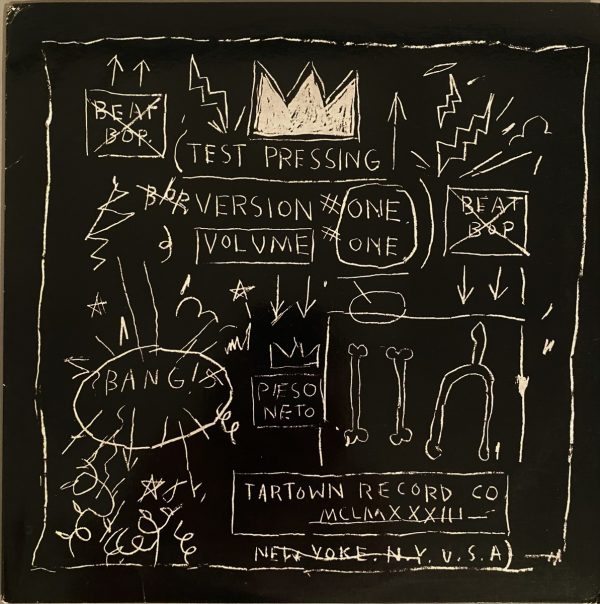 BEAT
BOP.
(TEST PRESSING
VERSION #ONE.
VOLUME #ONE
)
BEAT
BOP
BANG!
PIESO
NETO
TARTOWN RECORD CO
MCLMXXXIII—
NEW YOKE. N.Y. U.S.A)